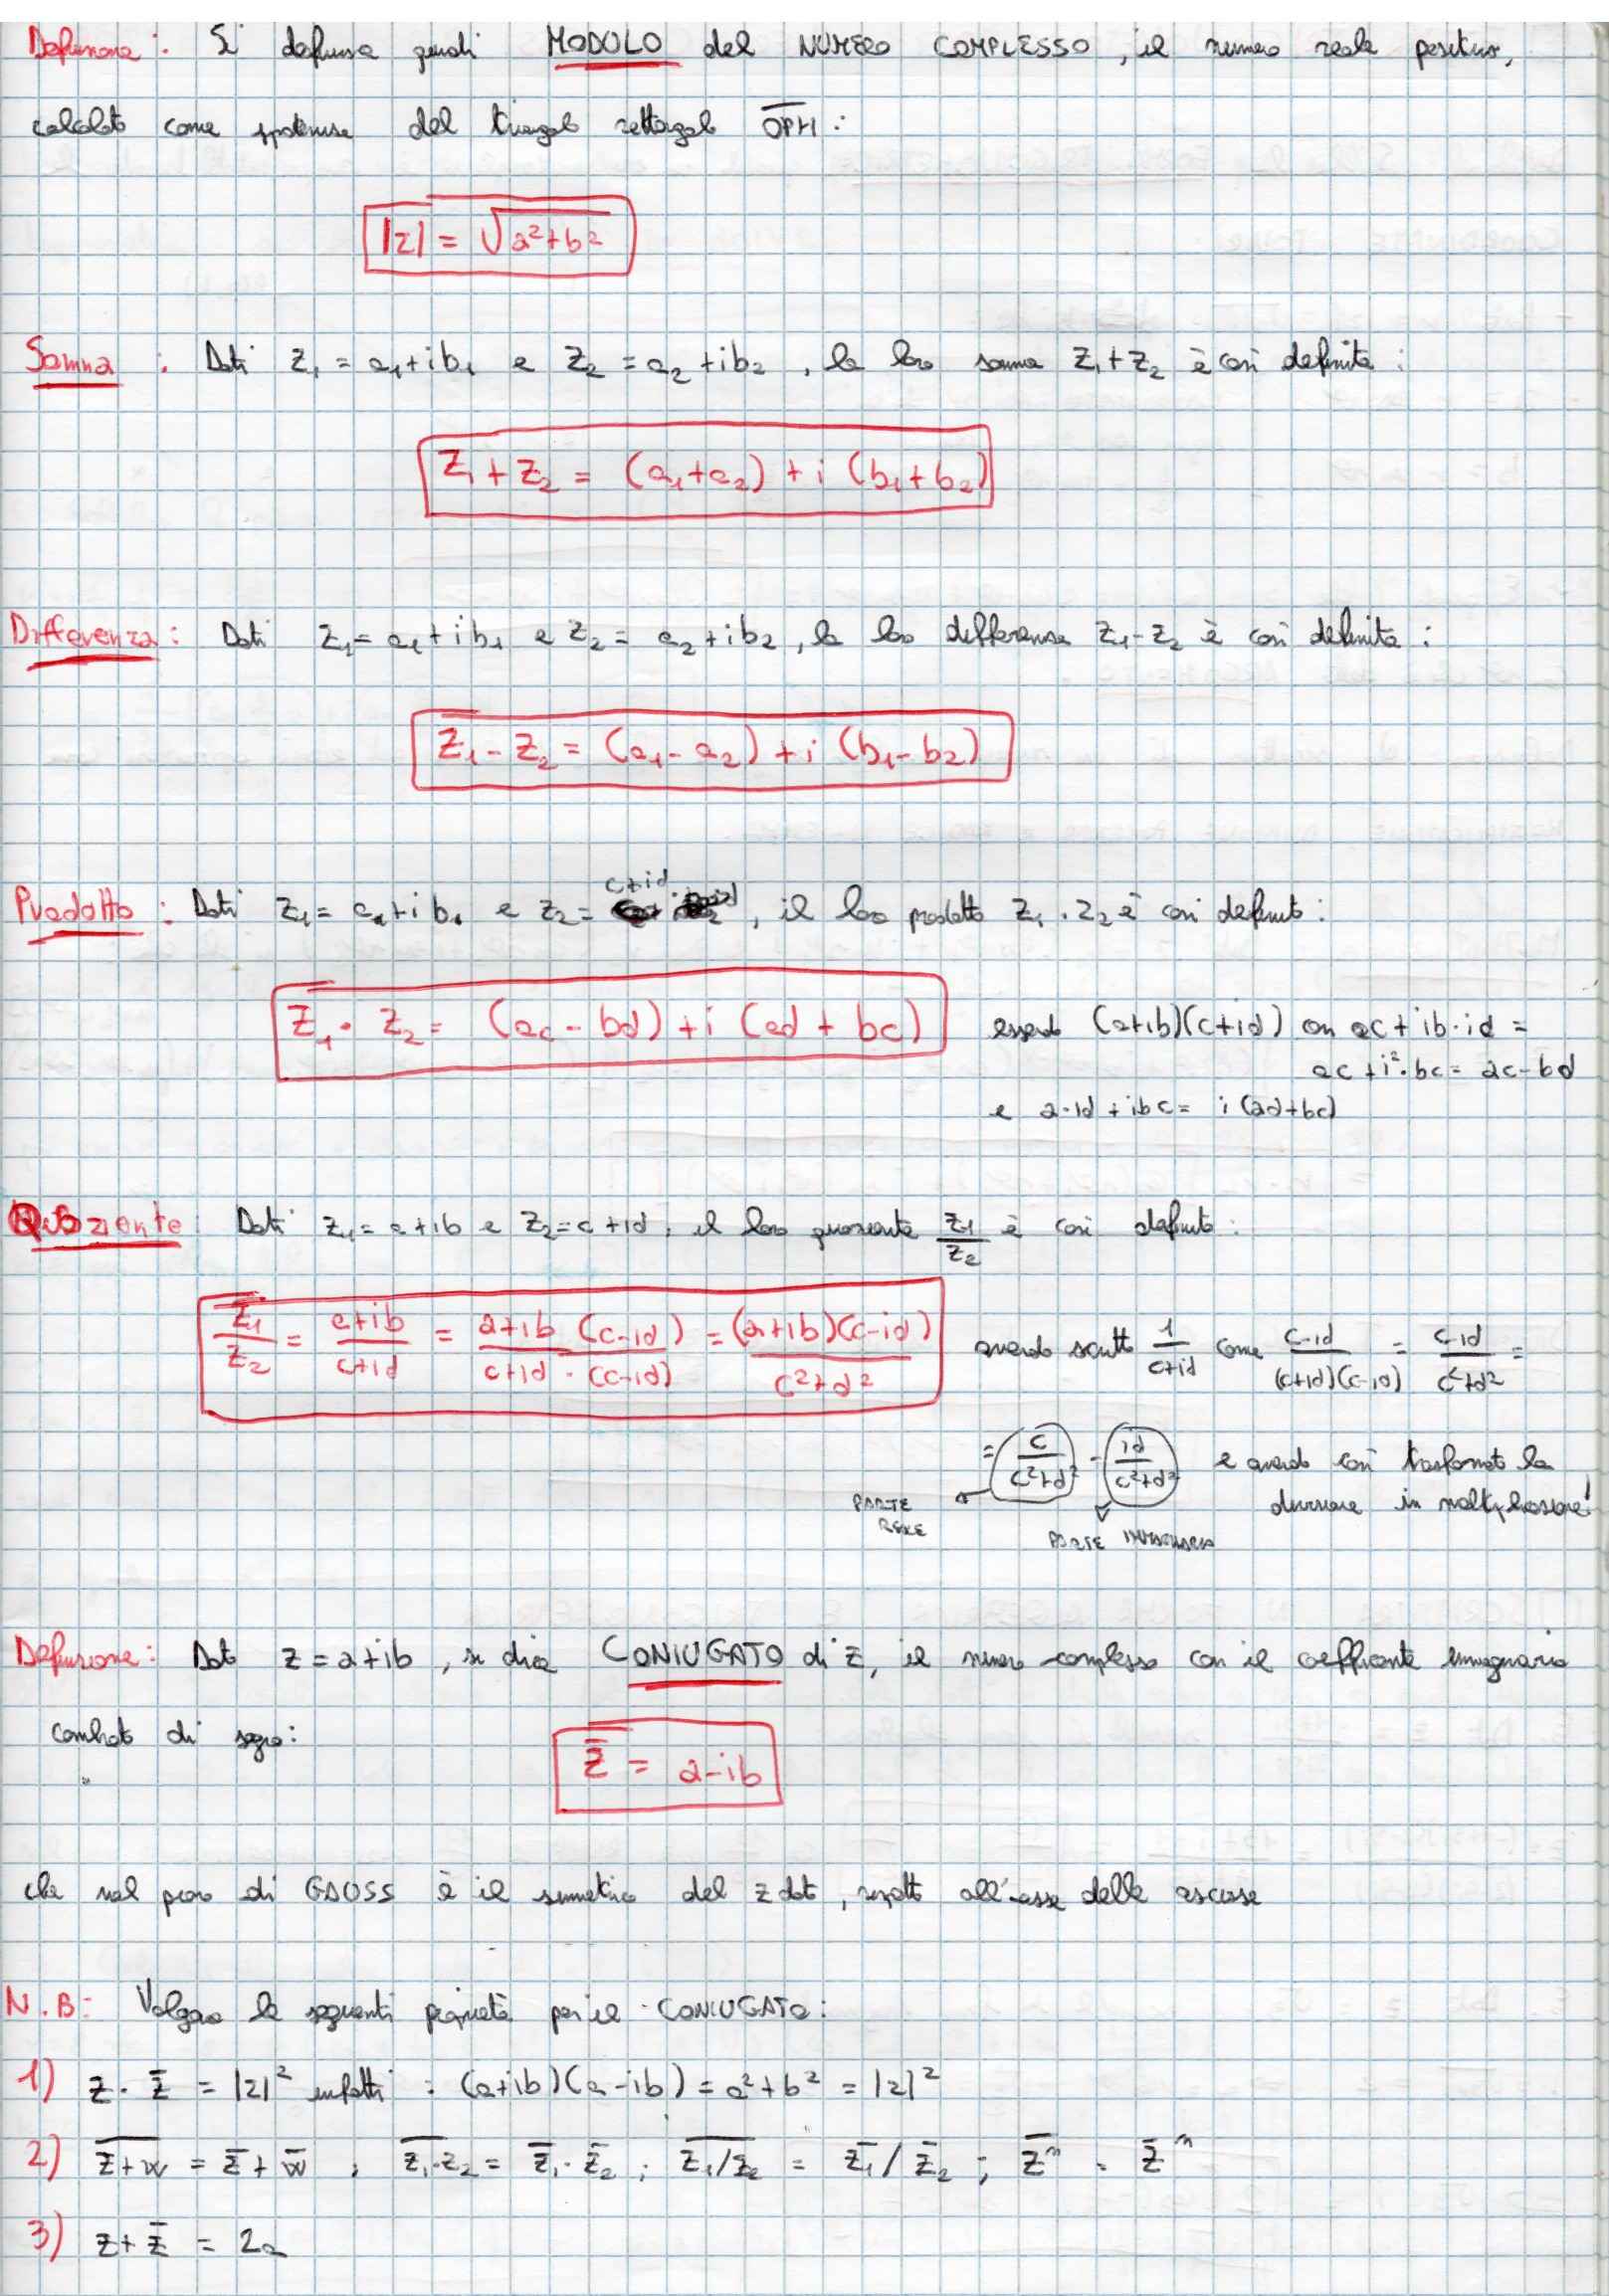 Definizione: Si definisce quindi MODULO del NUMERO COMPLESSO, il numero reale positivo,
calcolato come ipotenusa del triangolo rettangolo OPH:
|z| = √a²+b²
Somma: Dati z₁ = a₁+ib₁ e z₂ = a₂+ib₂, la loro somma z₁+z₂ è così definita:
z₁+z₂ = (a₁+a₂) + i (b₁+b₂)
Differenza: Dati z₁ = a₁+ib₁ e z₂ = a₂+ib₂, la loro differenza z₁-z₂ è così definita:
z₁-z₂ = (a₁-a₂) + i (b₁-b₂)
c+id
Prodotto: Dati z₁ = a₁+ib₁ e z₂ = , il loro prodotto z₁·z₂ è così definito:
z₁·z₂ = (ac-bd) + i (ad+bc) essendo (a+ib)(c+id) con ac+ib·id =
ac+i²·bc = ac-bd
e a·id+ibc = i(ad+bc)
Quoziente: Dati z₁ = a+ib e z₂ = c+id, il loro quoziente z₁/z₂ è così definito:
z₁/z₂ = a+ib/c+id = a+ib/c+id · (c-id)/(c-id) = (a+ib)(c-id)/c²+d² avendo scritto 1/c+id come c-id/(c+id)(c-id) = c-id/c²+d² =
= c/c²+d² - id/c²+d² e avendo così trasformato la
divisione in moltiplicazione!
PARTE REALE
PARTE IMMAGINARIA
Definizione: Dato z = a+ib, si dice CONIUGATO di z, il numero complesso con il coefficiente immaginario
cambiato di segno:
z̅ = a-ib
che nel piano di GAUSS è il simmetrico del z dato, rispetto all'asse delle ascisse
N.B: Valgono le seguenti proprietà per il CONIUGATO:
1) z·z̅ = |z|² infatti: (a+ib)(a-ib) = a²+b² = |z|²
2) z̅+̅w̅ = z̅+w̅ ; z̅₁̅·̅z̅₂̅ = z̅₁·z̅₂ ; z̅₁̅/̅z̅₂̅ = z̅₁/z̅₂ ; z̅ⁿ = z̅ⁿ
3) z+z̅ = 2a